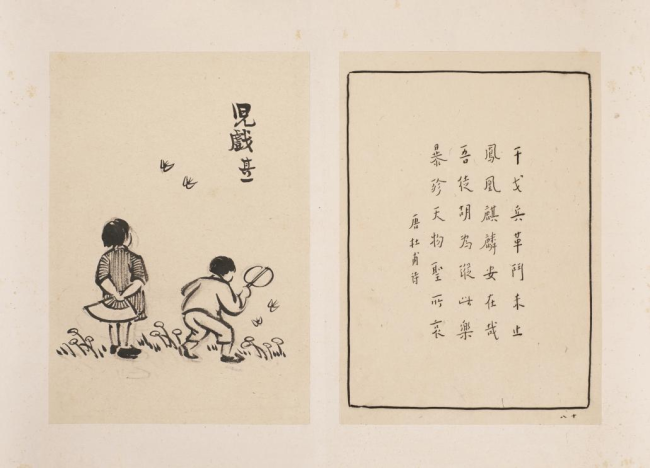 干戈兵革鬥未止
鳳凰麒麟安在哉
吾徒胡為縱此樂
暴殄天物聖所哀
唐杜甫詩
十八
兒戲其一